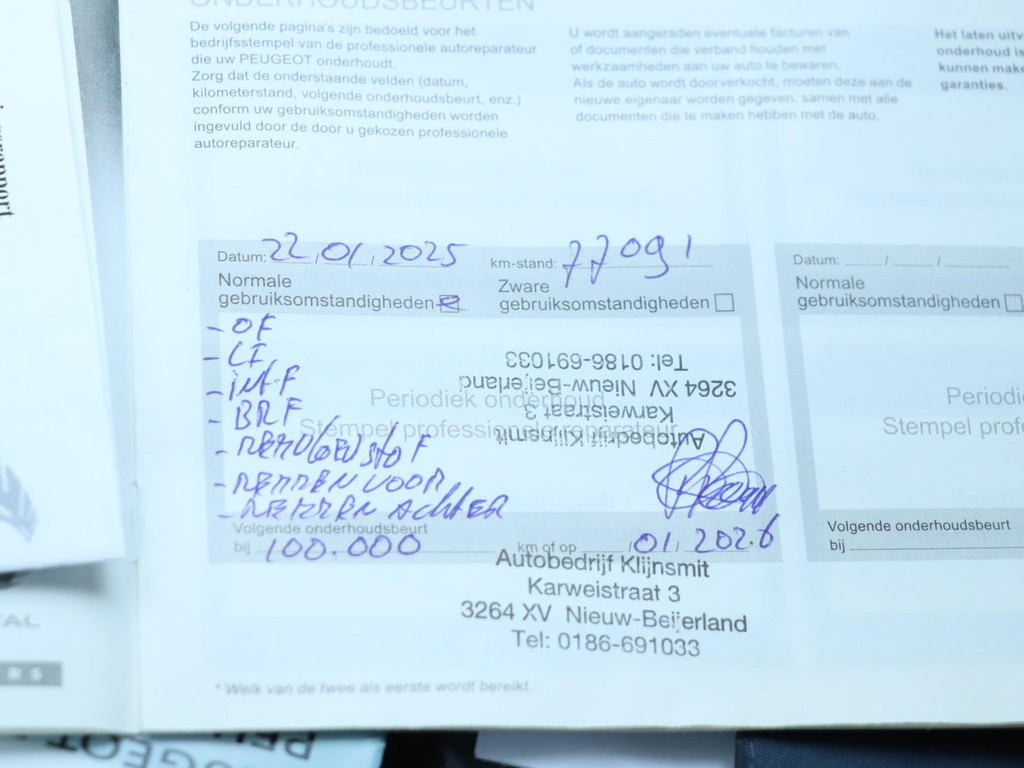 ONDERHOUDSBEURTEN
De volgende pagina's zijn bedoeld voor het
bedrijfsstempel van de professionele autoreparateur
die uw PEUGEOT onderhoudt.
Zorg dat de onderstaande velden (datum,
kilometerstand, volgende onderhoudsbeurt, enz.)
conform uw gebruiksomstandigheden worden
ingevuld door de door u gekozen professionele
autoreparateur.
U wordt aangeraden eventuele facturen van
of documenten die verband houden met
werkzaamheden aan uw auto te bewaren.
Als de auto wordt doorverkocht, moeten deze aan de
nieuwe eigenaar worden gegeven, samen met alle
documenten die te maken hebben met de auto.
Het laten
onderhoud
kunnen
garanties.
Datum: 22/01/2025
km-stand: 77091
Normale
gebruiksomstandigheden
Zware
gebruiksomstandigheden
- OF
- LI
- INT.F
- BRF
- REMVLOEISTOF
- REMMEN VOOR
- REMMEN ACHTER
Periodiek onderhoud
Stempel professionele reparateur
Autobedrijf Klijnsmit
Karweistraat 3
3264 XV Nieuw-Beijerland
Tel: 0186-691033
Volgende onderhoudsbeurt
bij 100.000 km of op /01/2026
Autobedrijf Klijnsmit
Karweistraat 3
3264 XV Nieuw-Beijerland
Tel: 0186-691033
* Welk van de twee als eerste wordt bereikt.
Datum: / /
Normale
gebruiksomstandigheden
Stempel
Volgende onderhoudsbeurt
bij
PEUGEOT